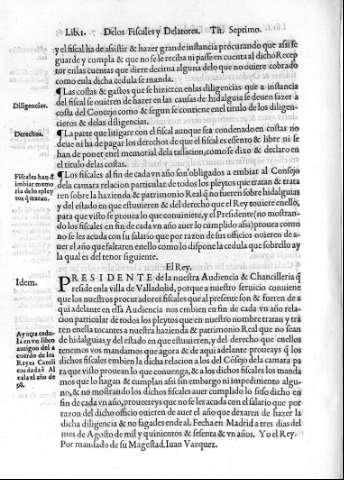 Lib.1. Delos Fiscales y Delatores. Tit. Septimo.
y el fiscal ha de assistir & hazer grande instancia procurando que assi se
guarde y cumpla & que no se le reciba ni passe en cuenta al dicho Recep
tor en las cuentas que diere decima alguna delo que no ouiere cobrado
como en la dicha cedula se manda.
Diligencias.
¶ Las costas & gastos que se hizieren en las diligencias que a instancia
del fiscal se ouieren de hazer en las causas de hidalguia se deuen fazer à
costa del Concejo como & segun se contiene enel titulo de los diligen-
cieros & delas diligencias.
Derechos.
¶ La parte que litigare con el fiscal aunque sea condenado en costas no
deue ni ha de pagar los derechos de que el fiscal es essento & libre ni se
han de poner en el memorial dela tassacion, como se dize & declaro en
el titulo delas costas.
Fiscales han &
imbiar memo
ria delos pley
tos q̃ tratan.
¶ Los fiscales al fin de cada vn año son obligados a embiar al Consejo
dela camara relacion particular de todos los pleytos que tratan & trata
ren sobre la hazienda & patrimonio Real q̃ no fueren sobre hidalguias
y del estado en que estuuieren & del derecho que el Rey touiere enello,
para que visto se prouea lo que conuiniere, y el Presidente (no mostran-
do los fiscales en fin de cada vn año auer lo cumplido assi) prouea como
no se les acuda con su salario que por razon de sus officios ouieren de a-
uer el año que faltaren enello como lo dispone la cedula que sobrello ay
la qual es del tenor siguiente.
El Rey.
Idem.
PRESIDENTE de la nuestra Audiencia & Chancilleria q̃
reside en la villa de Valladolid, porque a nuestro seruicio conuiene
que los nuestros procuradores fiscales que al presente son & fueren de a
qui adelante en essa Audiencia nos embien en fin de cada vn año rela-
cion particular de todos los pleytos que en nuestro nombre tratan y tra
taren en ella tocantes a nuestra hazienda & patrimonio Real que no sean
de hidalguias, y del estado en que estuuieren, y del derecho que enello
tenemos vos mandamos que agora & de aqui adelante proueays q̃ los
dichos fiscales embien la dicha relacion a los del Cõsejo dela camara pa
ra que visto prouean lo que conuenga, & a los dichos fiscales los manda
mos que lo hagan & cumplan assi sin embargo ni impedimento algu-
no, & no mostrando los dichos fiscales auer cumplido lo suso dicho en
fin de cada vn año, proueereys que no se les acuda con el salario que por
razon del dicho officio ouieren de auer el año que dexaren de hazer la
dicha diligencia & no fagades ende al. Fecha en Madrid a tres dias del
mes de Agosto de mil y quinientos & sesenta & vn años. Yo el Rey.
Por mandado de su Magestad. Iuan Vazquez.
Ay otra cedu-
la en vn libro
antiguo del a
cuerdo de los
Reyes Catoli
cos dada ẽ Al
cala el año de
98.